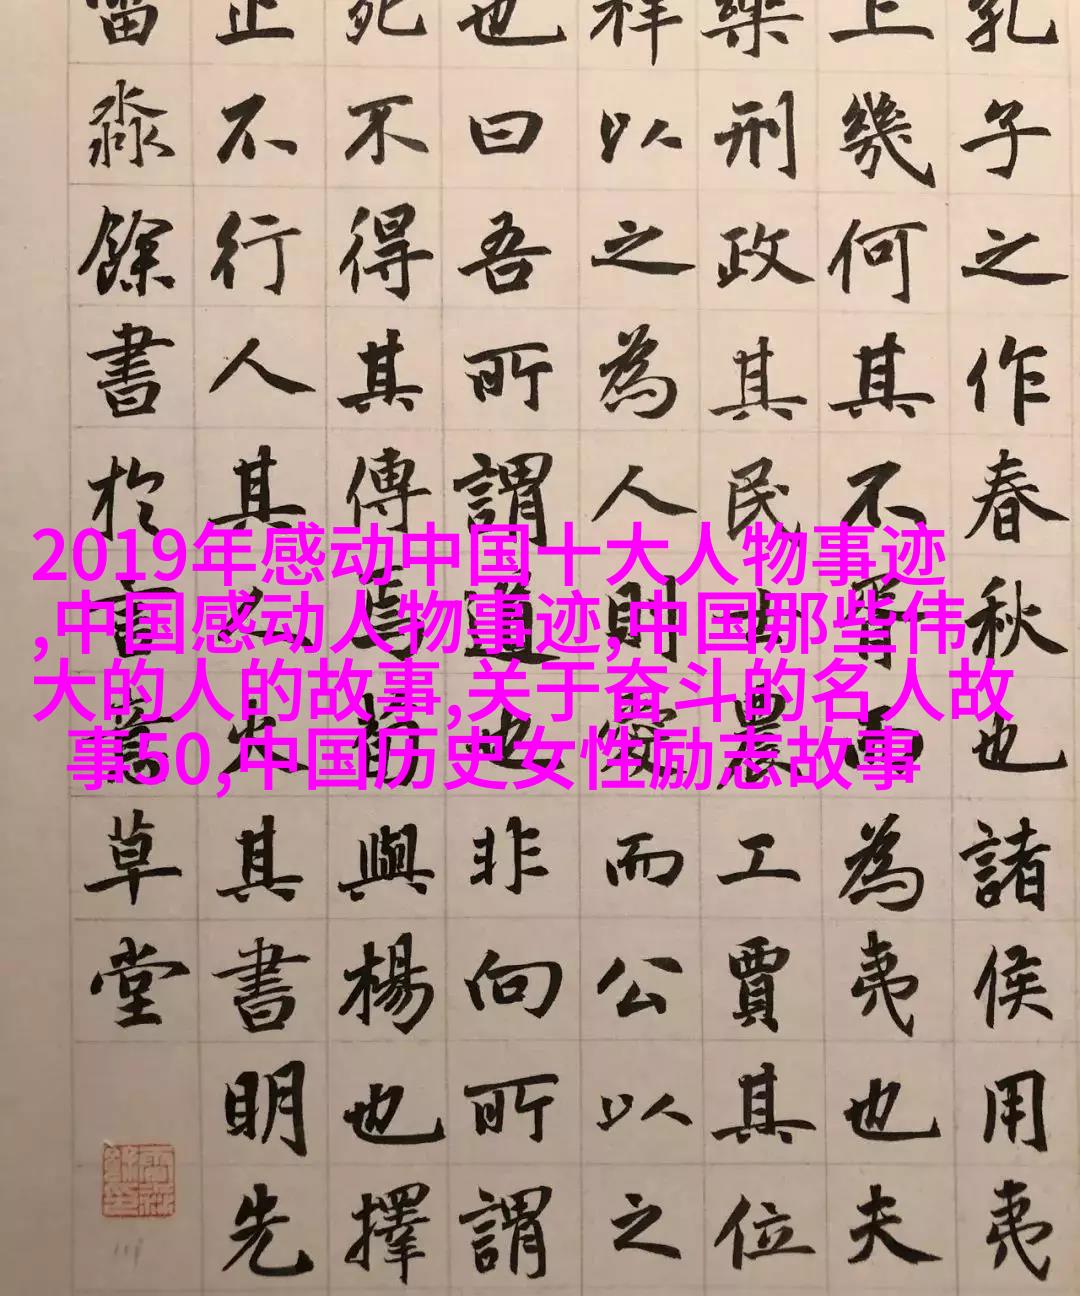 孔子之作春秋也諸侯用夷
上幾何其不胥而為夷也夫
樂刑政其民士農工賈其位
祥以之為人則愛而公以之
也曰吾所謂道也非向所謂
死不得其傳焉與楊也擇
止不行人其人火其書明先
淼餘書於草堂
2019年感动中国十大人物事迹
,中国感动人物事迹,中国那些伟
大的人的故事,关于奋斗的名人故
事50,中国历史女性励志故事